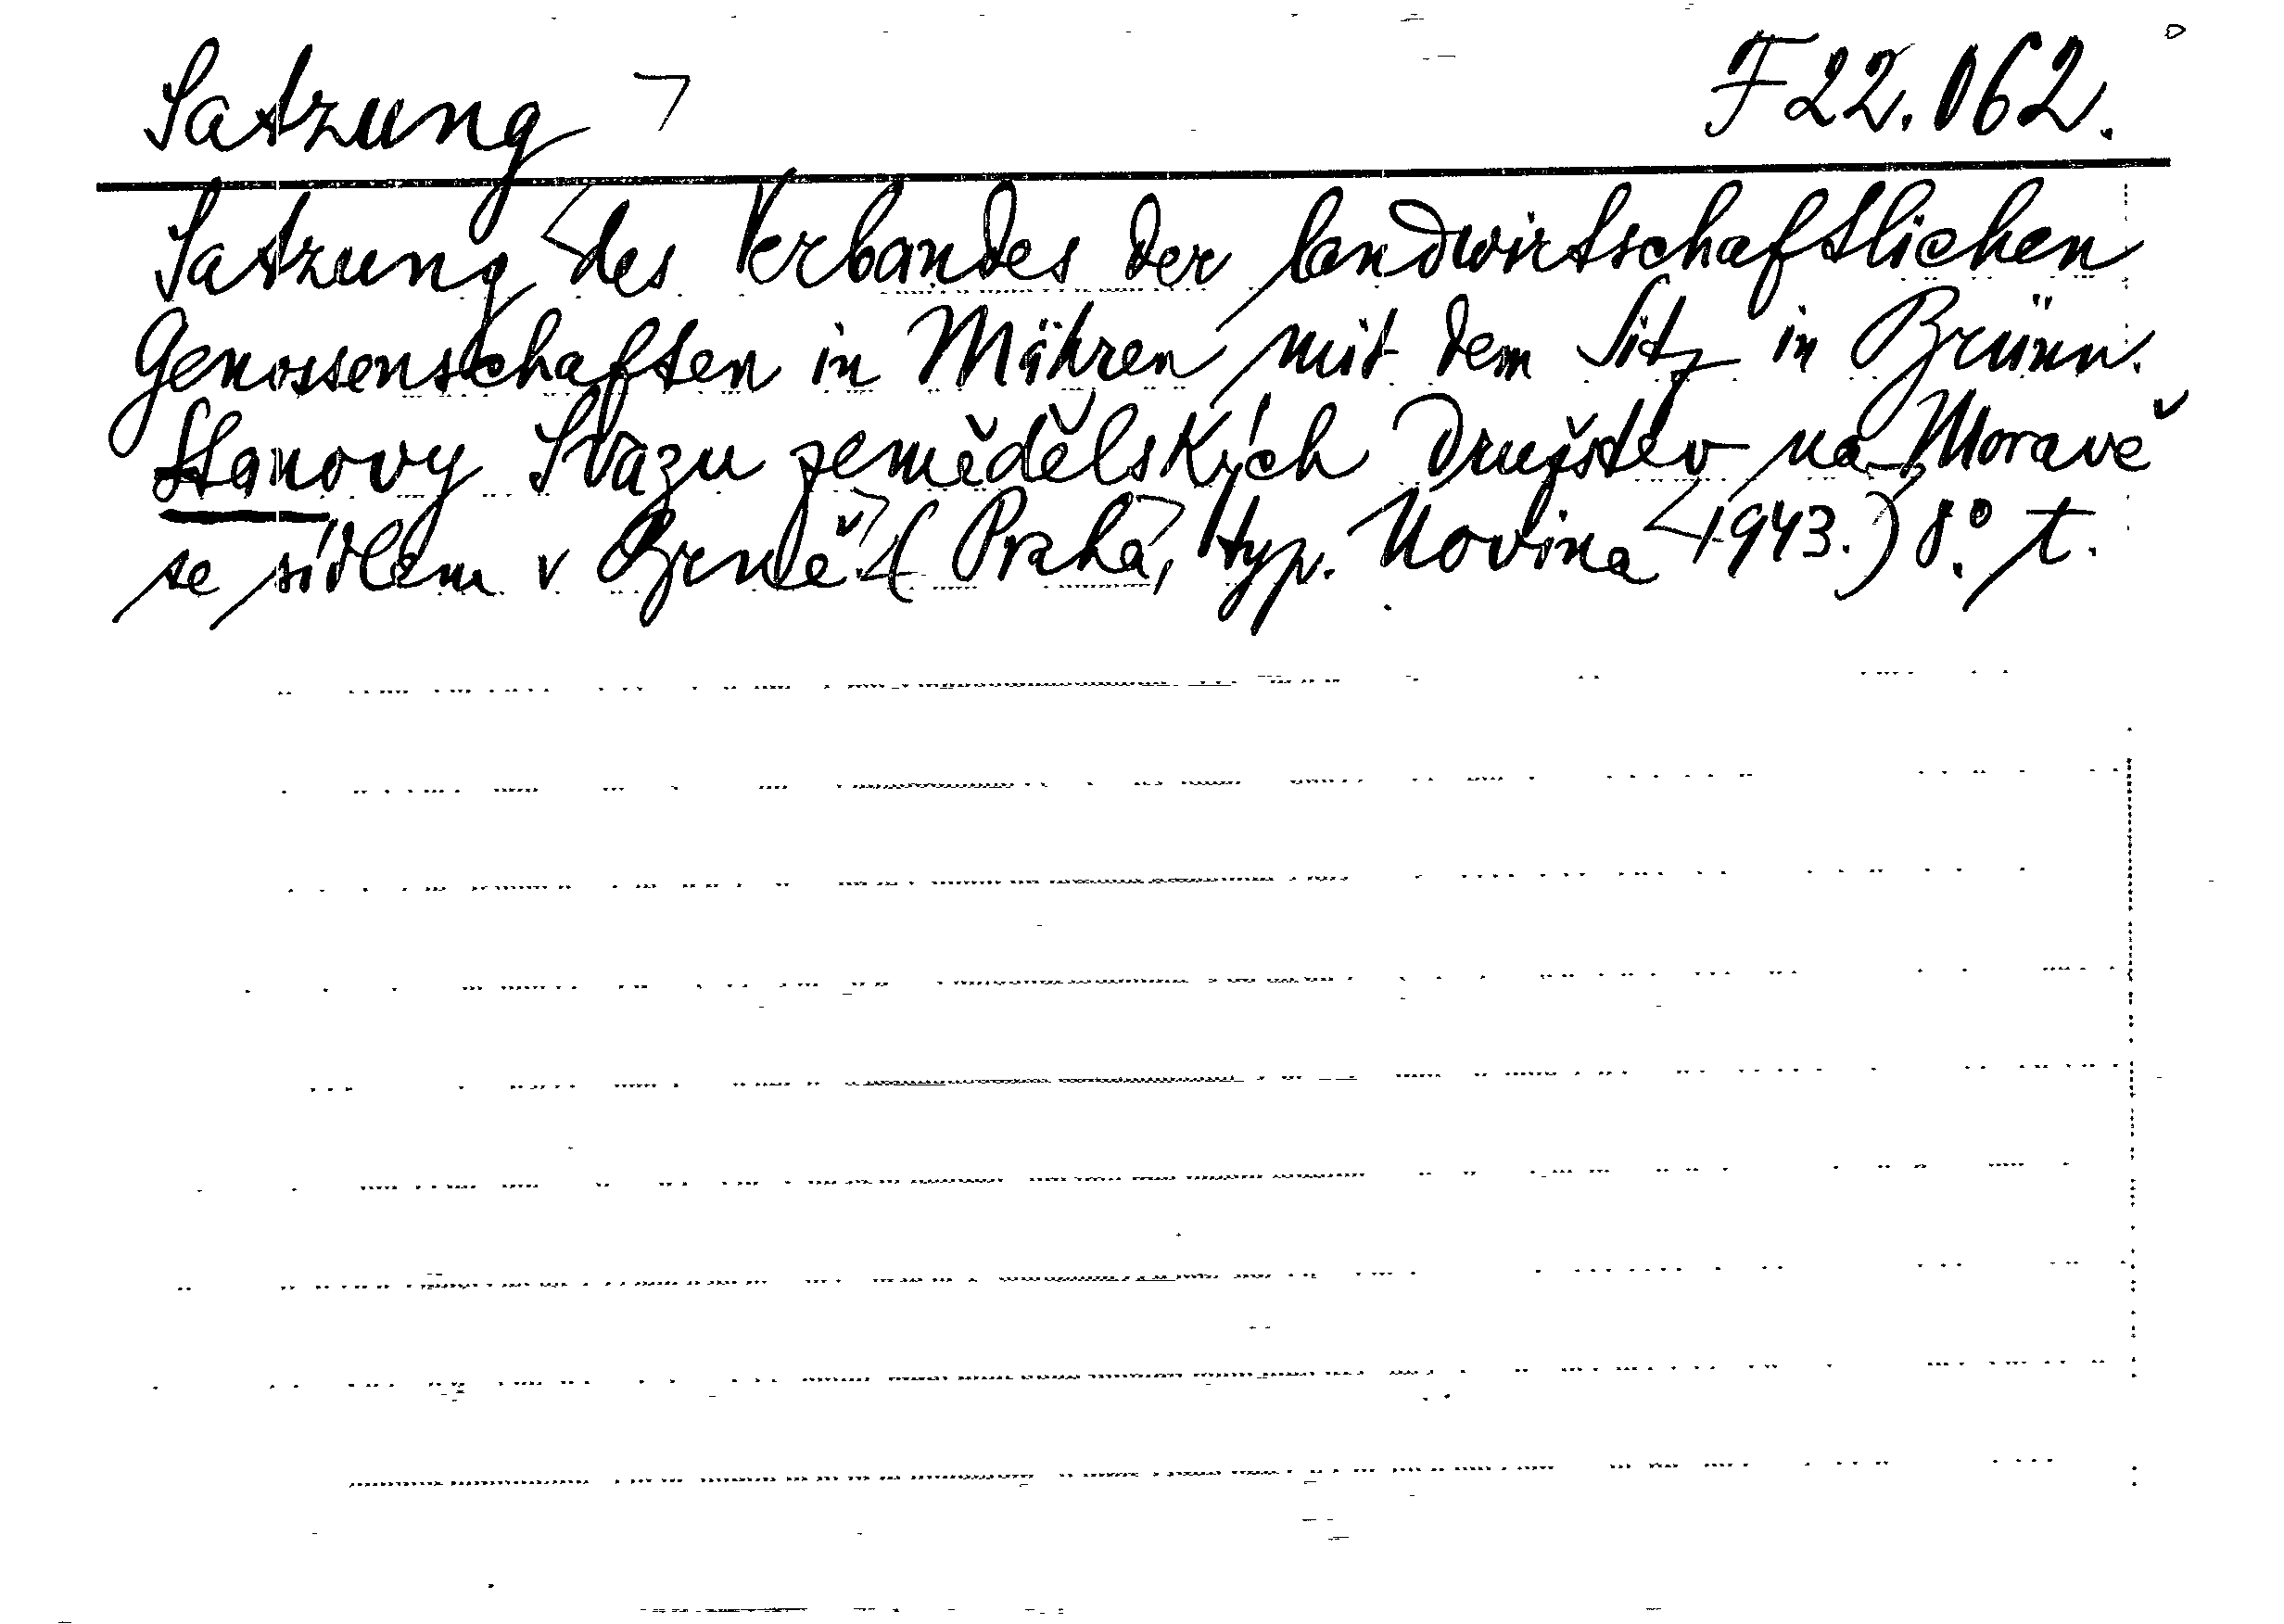 Satzung ¬ F 22.062.
Satzung <des Verbandes der landwirtschaftlichen
Genossenschaften in Mähren mit dem Sitz in Brünn.
Stanovy Svazu zemědělských družstev na Moravě
se sídlem v Brně.> (Praha, typ. Novina <1943.) 8°. t.